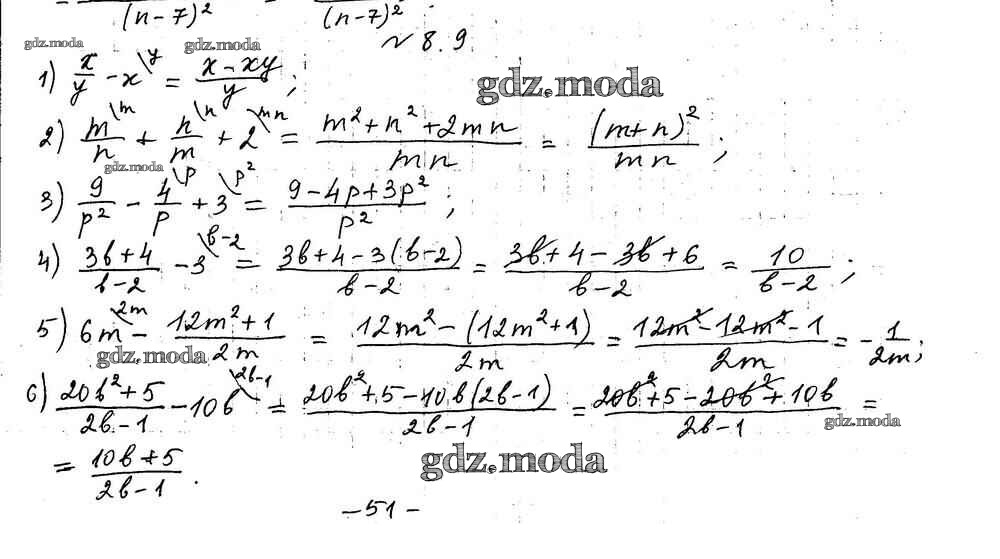 (n-7)² (n-7)²
gdz.moda gdz.moda
№ 8.9
1) x/y - x\y = (x-xy)/y ; gdz.moda
2) m\m/n + n\n/m + 2\mn = (m²+n²+2mn)/mn = (m+n)²/mn ;
gdz.moda
3) 9/p² - 4\p/p + 3\p² = (9-4p+3p²)/p² ;
4) (3b+4)/(b-2) - 3\b-2 = (3b+4-3(b-2))/(b-2) = (3b+4-3b+6)/(b-2) = 10/(b-2) ;
5) 6m\2m - (12m²+1)/2m = (12m²-(12m²+1))/2m = (12m²-12m²-1)/2m = -1/2m ;
gdz.moda
6) (20b²+5)/(2b-1) - 10b\2b-1 = (20b²+5-10b(2b-1))/(2b-1) = (20b²+5-20b²+10b)/(2b-1) =
gdz.moda
= (10b+5)/(2b-1) . gdz.moda
-51-